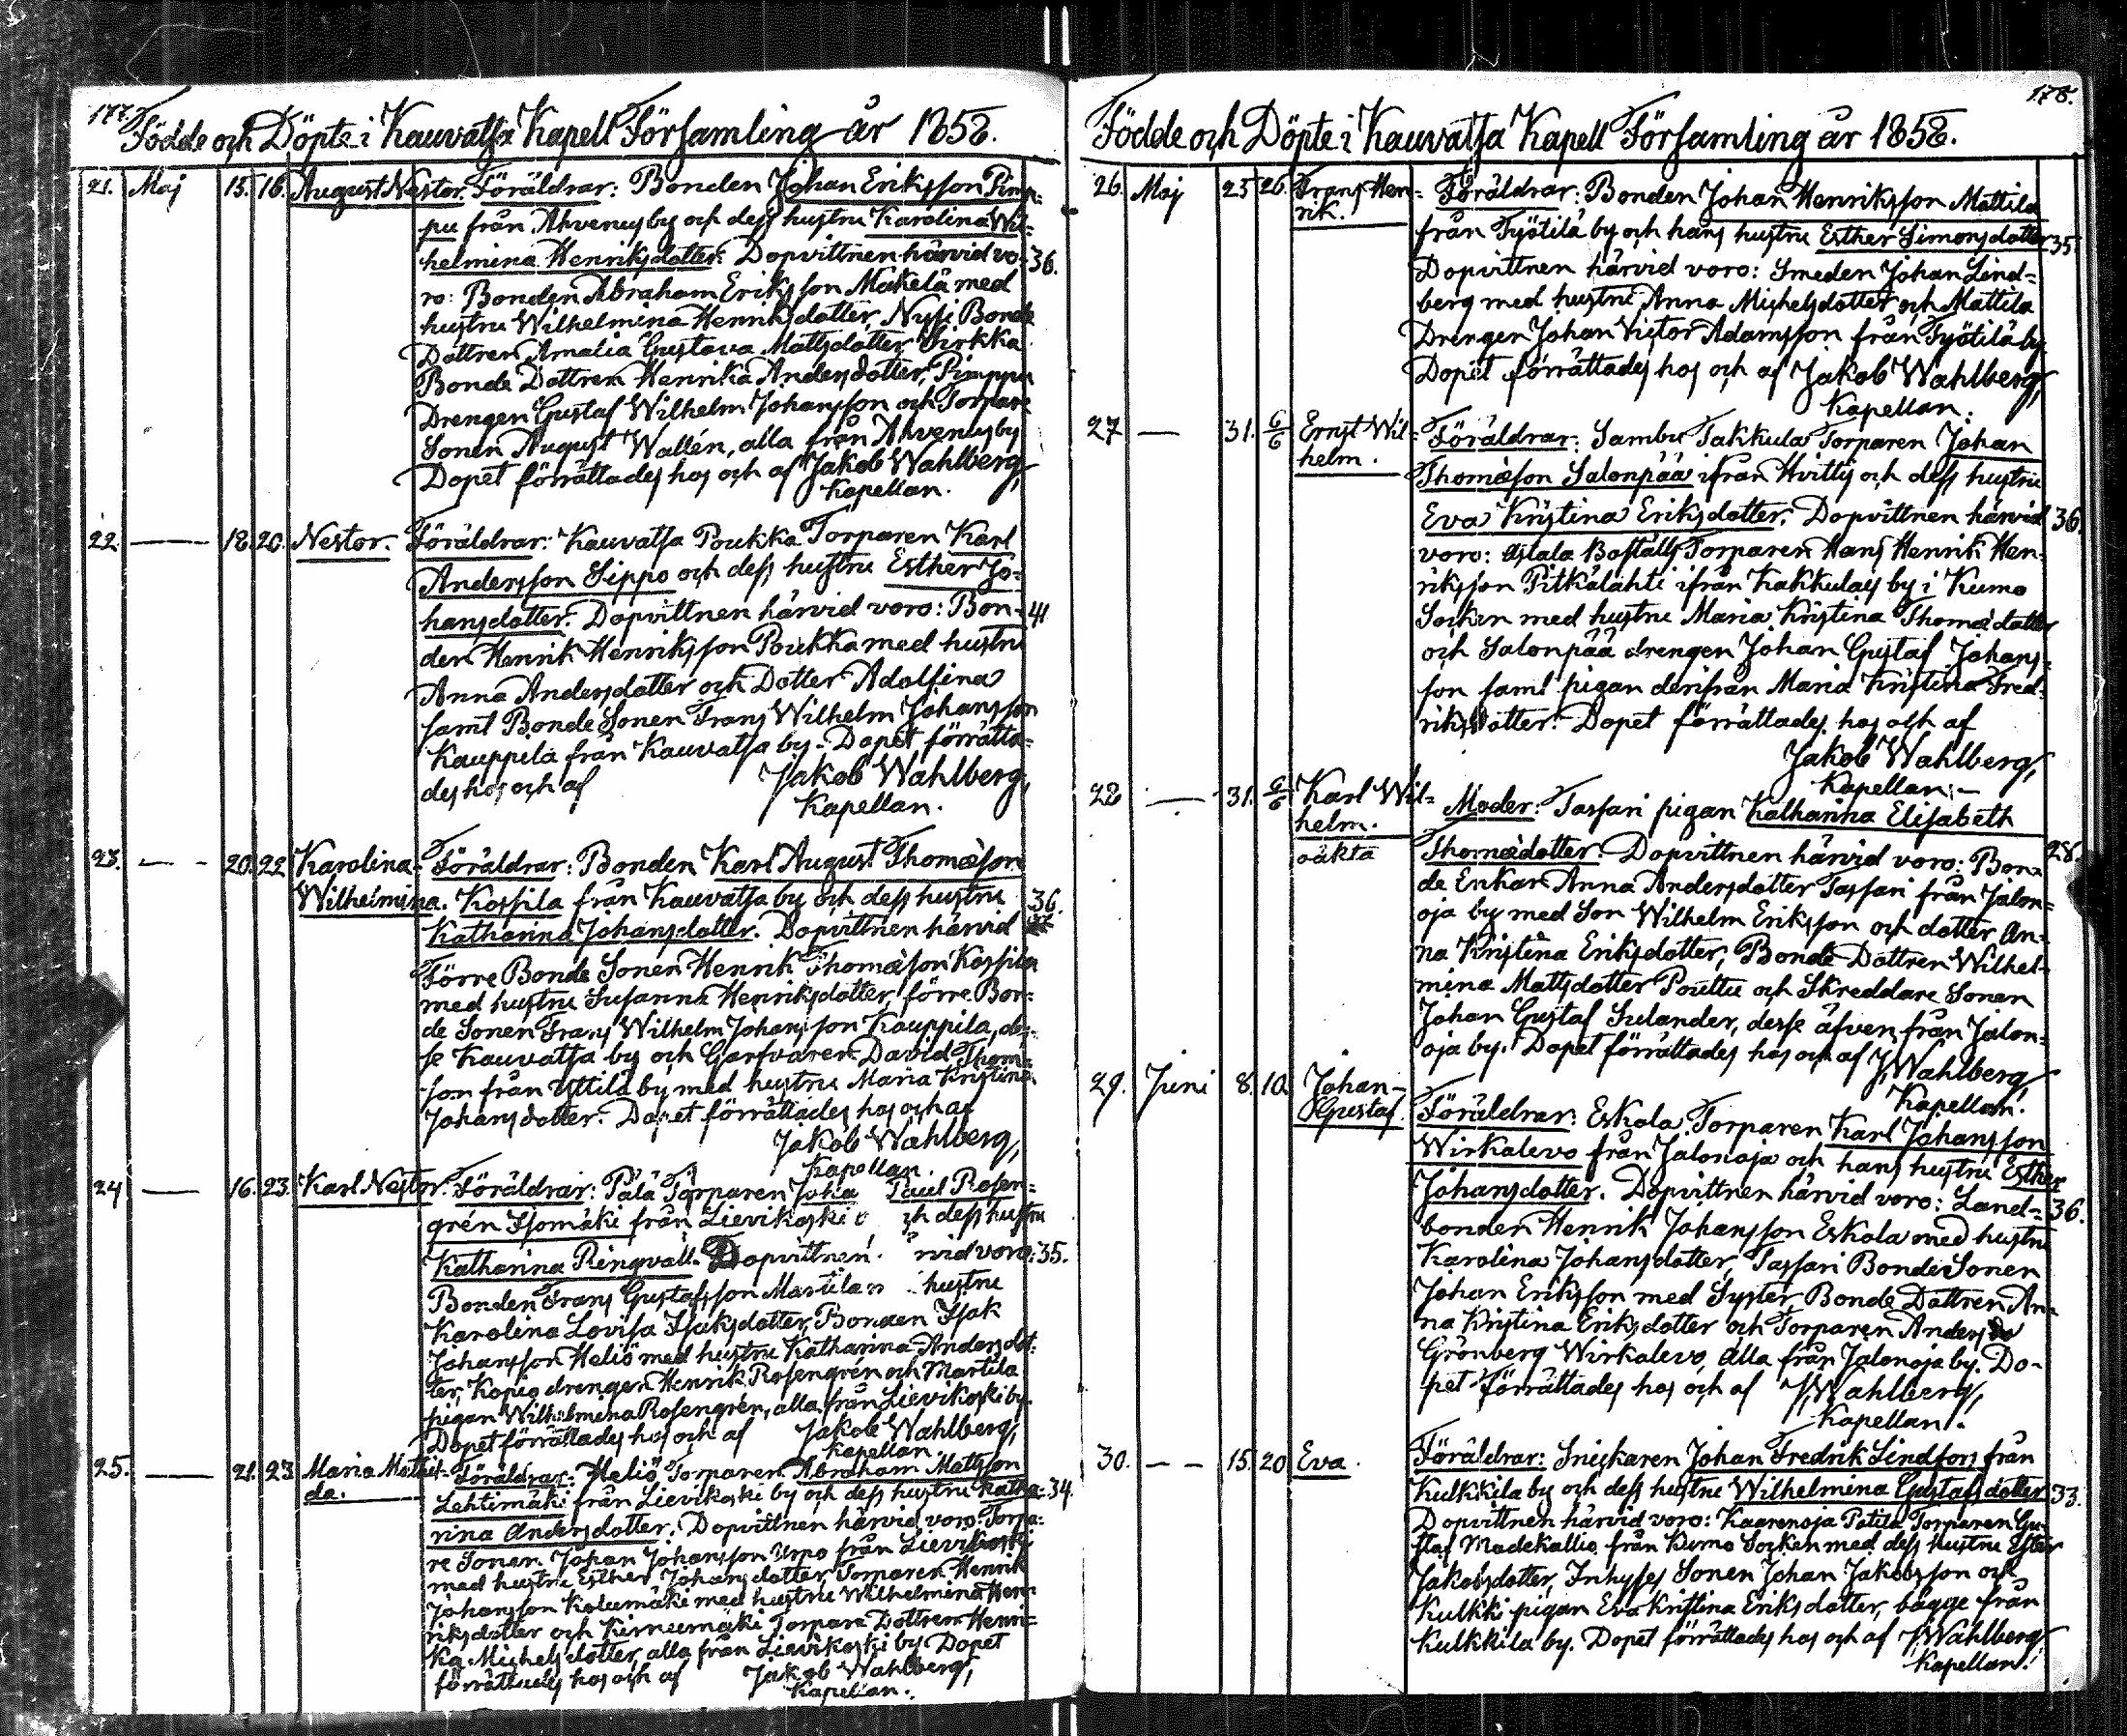 177.
Födde och Döpte i Kauvatsa Kapell Församling år 1858.
21. Maj 15. 16. August Nestor. Föräldrar: Bonden Johan Eriksson Pimp-
pu från Ahvenus by och dess hustru Karolina Wil-
helmina Henriksdotter. Dopvittnen härvid vo- 36.
ro: Bonden Abraham Eriksson Mäkelä med
hustru Wilhelmina Henriksdotter, Nysi Bonde
Dottren Amalia Gustava Mattsdotter Sirkka
Bonde Dottren Henrika Andersdotter, Pimppu
Drengen Gustaf Wilhelm Johansson och Torpare
Sonen August Wallén, alla från Ahvenus by
Dopet förrättades hos och af Jakob Wahlberg,
Kapellan.
22. — 18. 20. Nestor. Föräldrar: Kauvatsa Poukka Torparen Karl
Andersson Sippo och dess hustru Esther Jo-
hansdotter. Dopvittnen härvid voro: Bon- 41
den Henrik Henriksson Poukka med hustru
Anna Andersdotter och Dotter Adolfina
samt Bonde Sonen Frans Wilhelm Johansson
Kauppila från Kauvatsa by. Dopet förrätta-
des hos och af Jakob Wahlberg,
Kapellan.
23. — 20. 22 Karolina Föräldrar: Bonden Karl August Thomasson
Wilhelmina. Kossila från Kauvatsa by och dess hustru 36.
Katharina Johansdotter. Dopvittnen härvid
Förre Bonde Sonen Henrik Thomasson Kossila
med hustru Susanna Henriksdotter, förre Bon-
de Sonen Frans Wilhelm Johansson Kauppila, des-
se Kauvatsa by och Garfvaren David Thom-
son från Yttilä by med hustru Maria Kristina
Johansdotter. Dopet förrättades hos och af
Jakob Wahlberg,
Kapellan.
24 — 16. 23. Karl Nestor. Föräldrar: Pälä Torparen Joha Paul Rosen-
grén Isomäki från Lievikoski o ch dess hustru
Katharina Ringvall. Dopvittnen rvid voro: 35.
Bonden Frans Gustafsson Martila hustru
Karolina Lovisa Isaksdotter, Bonden Isak
Johansson Heliö med hustru Katharina Andersdot-
ter, Kopio drengen Henrik Rosengrén och Martila
pigan Wilhelmina Rosengrén, alla från Lievikoski by.
Dopet förrättades hos och af Jakob Wahlberg,
Kapellan.
25. — 21. 23 Maria Mathil- Föräldrar: Heliö Torparen Abraham Mattsson
da. Lehtimäki från Lievikoski by och dess hustru Katha- 34.
rina Andersdotter. Dopvittnen härvid voro: Torpa-
re Sonen Johan Johansson Urpo från Lievikoski
med hustru Esther Johansdotter, Torparen Henrik
Johansson Kolumäki med hustru Wilhelmina Hen-
riksdotter och Kirnumäki Torpare Dottren Henri-
ka Michelsdotter, alla från Lievikoski by. Dopet
förrättades hos och af Jakob Wahlberg,
Kapellan.
178.
Födde och Döpte i Kauvatsa Kapell Församling år 1858.
26. Maj 25 26. Frans Hen- Föräldrar: Bonden Johan Henriksson Mattila
rik. från Työtilä by och hans hustru Esther Simonsdotter 35.
Dopvittnen härvid voro: Smeden Johan Lind-
berg med hustru Anna Michelsdotter och Mattila
Drengen Johan Victor Adamsson från Työtilä by
Dopet förrättades hos och af Jakob Wahlberg,
Kapellan.
27 — 31. 6/6 Ernst Wil- Föräldrar: Sambu Takkula Torparen Johan
helm. Thomasson Salonpää ifrån Hvittis och dess hustru
Eva Kristina Eriksdotter. Dopvittnen härvid 36.
voro: Boställs Torparen Hans Henrik Hen-
riksson Pitkälahti ifrån Kakkulais by i Kumo
Socken med hustru Maria Kristina Thomædotter
och Salonpää drengen Johan Gustaf Johans-
son samt pigan derifrån Maria Kristina Fred-
riksdotter. Dopet förrättades hos och af
Jakob Wahlberg,
Kapellan.
28 — 31. 6/6 Karl Wil- Moder: Tassari pigan Katharina Elisabeth
helm.
oäkta Thomædotter. Dopvittnen härvid voro: Bon- 28.
de Enkan Anna Andersdotter Tassari från Jalon-
oja by med Son Wilhelm Eriksson och dotter An-
na Kristina Eriksdotter, Bonde Dottren Wilhel-
mina Mattsdotter Pouttu och Skreddare Sonen
Johan Gustaf Sulander, desse äfven från Jalon-
oja by. Dopet förrättades hos och af J. Wahlberg,
Kapellan.
29. Juni 8. 10. Johan Föräldrar: Eskola Torparen Karl Johansson
Gustaf. Wirkalevo från Jalonoja och hans hustru Esther
Johansdotter. Dopvittnen härvid voro: Land- 36.
bonden Henrik Johansson Eskola med hustru
Karolina Johansdotter, Tassari Bonde Sonen
Johan Eriksson med Syster Bonde Dottren An-
na Kristina Eriksdotter och Torparen Anders
Grönberg Wirkalevo, alla från Jalonoja by. Do-
pet förrättades hos och af J. Wahlberg,
Kapellan.
30. — 15. 20 Eva. Föräldrar: Snickaren Johan Fredrik Lindfors från
Kulkkila by och dess hustru Wilhelmina Gustafsdotter 33.
Dopvittnen härvid voro: Kaarenoja Potila Torparen Gu-
staf Madekallio från Kumo Socken med dess hustru Ester
Jakobsdotter, Inhyses Sonen Johan Jakobsson och
Kulkki pigan Eva Kristina Eriksdotter, bägge från
Kulkkila by. Dopet förrättades hos och af J. Wahlberg,
Kapellan.